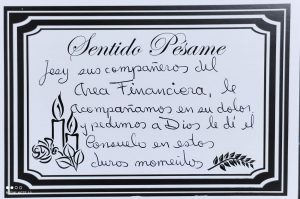 Sentido Pésame
Jesy sus compañeros del
Area Financiera, le
acompañamos en su dolor
y pedimos a Dios le dé el
Consuelo en estos
duros momentos